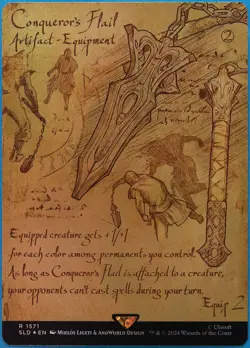 Conqueror's Flail
Artifact - Equipment
2
Equipped creature gets +1/+1
for each color among permanents you control.
As long as Conqueror's Flail is attached to a creature,
your opponents can't cast spells during your turn.
Equip 2
R 1571
SLD ★ EN MIKLÓS LIGETI & ANOWORLD DESIGN
© Ubisoft
™ & © 2024 Wizards of the Coast